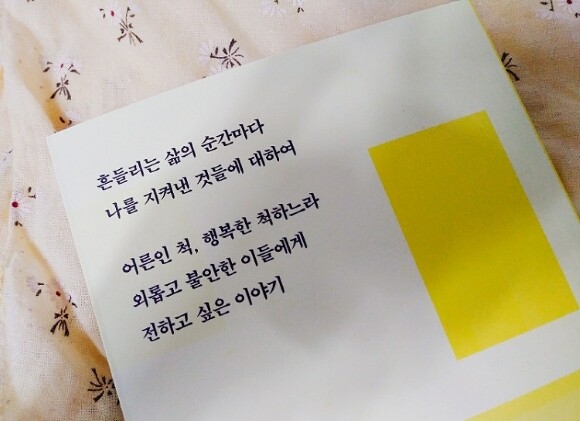 흔들리는 삶의 순간마다
나를 지켜낸 것들에 대하여
어른인 척, 행복한 척하느라
외롭고 불안한 이들에게
전하고 싶은 이야기